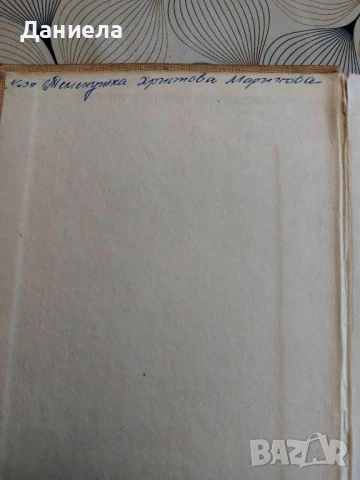 Даниела
Теменужка Христова Маринова
BAZAR